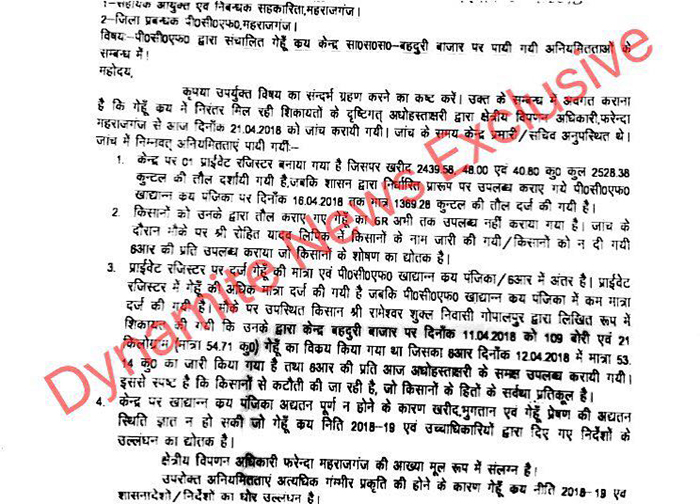 1-सहायक आयुक्त एवं निबन्धक सहकारिता,महराजगंज।
2-जिला प्रबन्धक पी०सी०एफ०,महराजगंज।
विषयः-पी०सी०एफ० द्वारा संचालित गेहूँ कय केन्द्र सा०स०स०-बहदुरी बाजार पर पायी गयी अनियमितताओं के
सम्बन्ध में!
महोदय,
कृपया उपर्युक्त विषय का संन्दर्भ ग्रहण करने का कष्ट करें। उक्त के सम्बन्ध में अवगत कराना
है कि गेहूँ कय में निरंतर मिल रही शिकायतों के दृष्टिगत् अधोहस्ताक्षरी द्वारा क्षेत्रीय विपणन अधिकारी,फरेन्दा
महराजगंज से आज दिनाँक 21.04.2018 को जांच करायी गयी। जांच के समय केन्द्र प्रभारी/सचिव अनुपस्थित थे।
जांच में निम्नवत् अनियमितताएं पायी गयीः-
1. केन्द्र पर 01 प्राईवेट रजिस्टर बनाया गया है जिसपर खरीद 2439.58, 48.00 एवं 40.80 कु0 कुल 2528.38
कुन्टल की तौल दर्शायी गयी है,जबकि शासन द्वारा निर्धारित प्रारूप पर उपलब्ध कराए गये पी०सी०एफ०
खाद्यान्न कय पंजिका पर दिनाँक 16.04.2018 तक मात्र 1369.28 कुन्टल की तौल दर्ज की गयी है।
2. किसानों को उनके द्वारा तौल कराए गए गेहूँ का 6R अभी तक उपलब्ध नहीं कराया गया है। जाच के
दौरान मौके पर श्री रोहित यादव लिपिक नें किसानों के नाम जारी की गयी/किसानों को न दी गयी
6आर की प्रति उपलब्ध कराया जो किसानों के शोषण का द्योतक है।
3. प्राईवेट रजिस्टर पर दर्ज गेहूँ की मात्रा एवं पी०सी०एफ० खाद्यान्न कय पंजिका/6आर में अंतर है। प्राईवेट
रजिस्टर में गेहूँ की अधिक मात्रा दर्ज की गयी है जबकि पी०सी०एफ० खाद्यान्न कय पंजिका में कम मात्रा
दर्ज की गयी है। मौके पर उपस्थित किसान श्री रामेश्वर शुक्ल निवासी गोपालपुर द्वारा लिखित रूप में
शिकायत की गयी कि उनके द्वारा केन्द्र बहदुरी बाजार पर दिनाँक 11.04.2018 को 109 बोरी एवं 21
किलोग्राम (मात्रा 54.71 कु0) गेहूँ का विकय किया गया था जिसका 6आर दिनाँक 12.04.2018 में मात्रा 53.
14 कु0 का जारी किया गया है तथा 6आर की प्रति आज अधोहस्ताक्षरी के समक्ष उपलब्ध करायी गयी।
इससे स्पष्ट है कि किसानों से कटौती की जा रही है, जो किसानों के हितों के सर्वथा प्रतिकूल है।
4. केन्द्र पर खाद्यान्न कय पंजिका अद्यतन पूर्ण न होने के कारण खरीद,भुगतान एवं गेहूँ प्रेषण की अद्यतन
स्थिति ज्ञात न हो सकी जो गेहूँ कय निति 2018-19 एवं उच्चाधिकारियों द्वारा दिए गए निर्देशों के
उल्लंघन का द्योतक है।
क्षेत्रीय विपणन अधिकारी फरेन्दा महराजगंज की आख्या मूल रूप में संलग्न है।
उपरोक्त अनियमितताएं अत्यधिक गम्भीर प्रकृति की होने के कारण गेहूँ कय नीति 2018-19 एवं
शासनादेशों/निर्देशों का घोर उल्लंघन है।
Dynamite News Exclusive